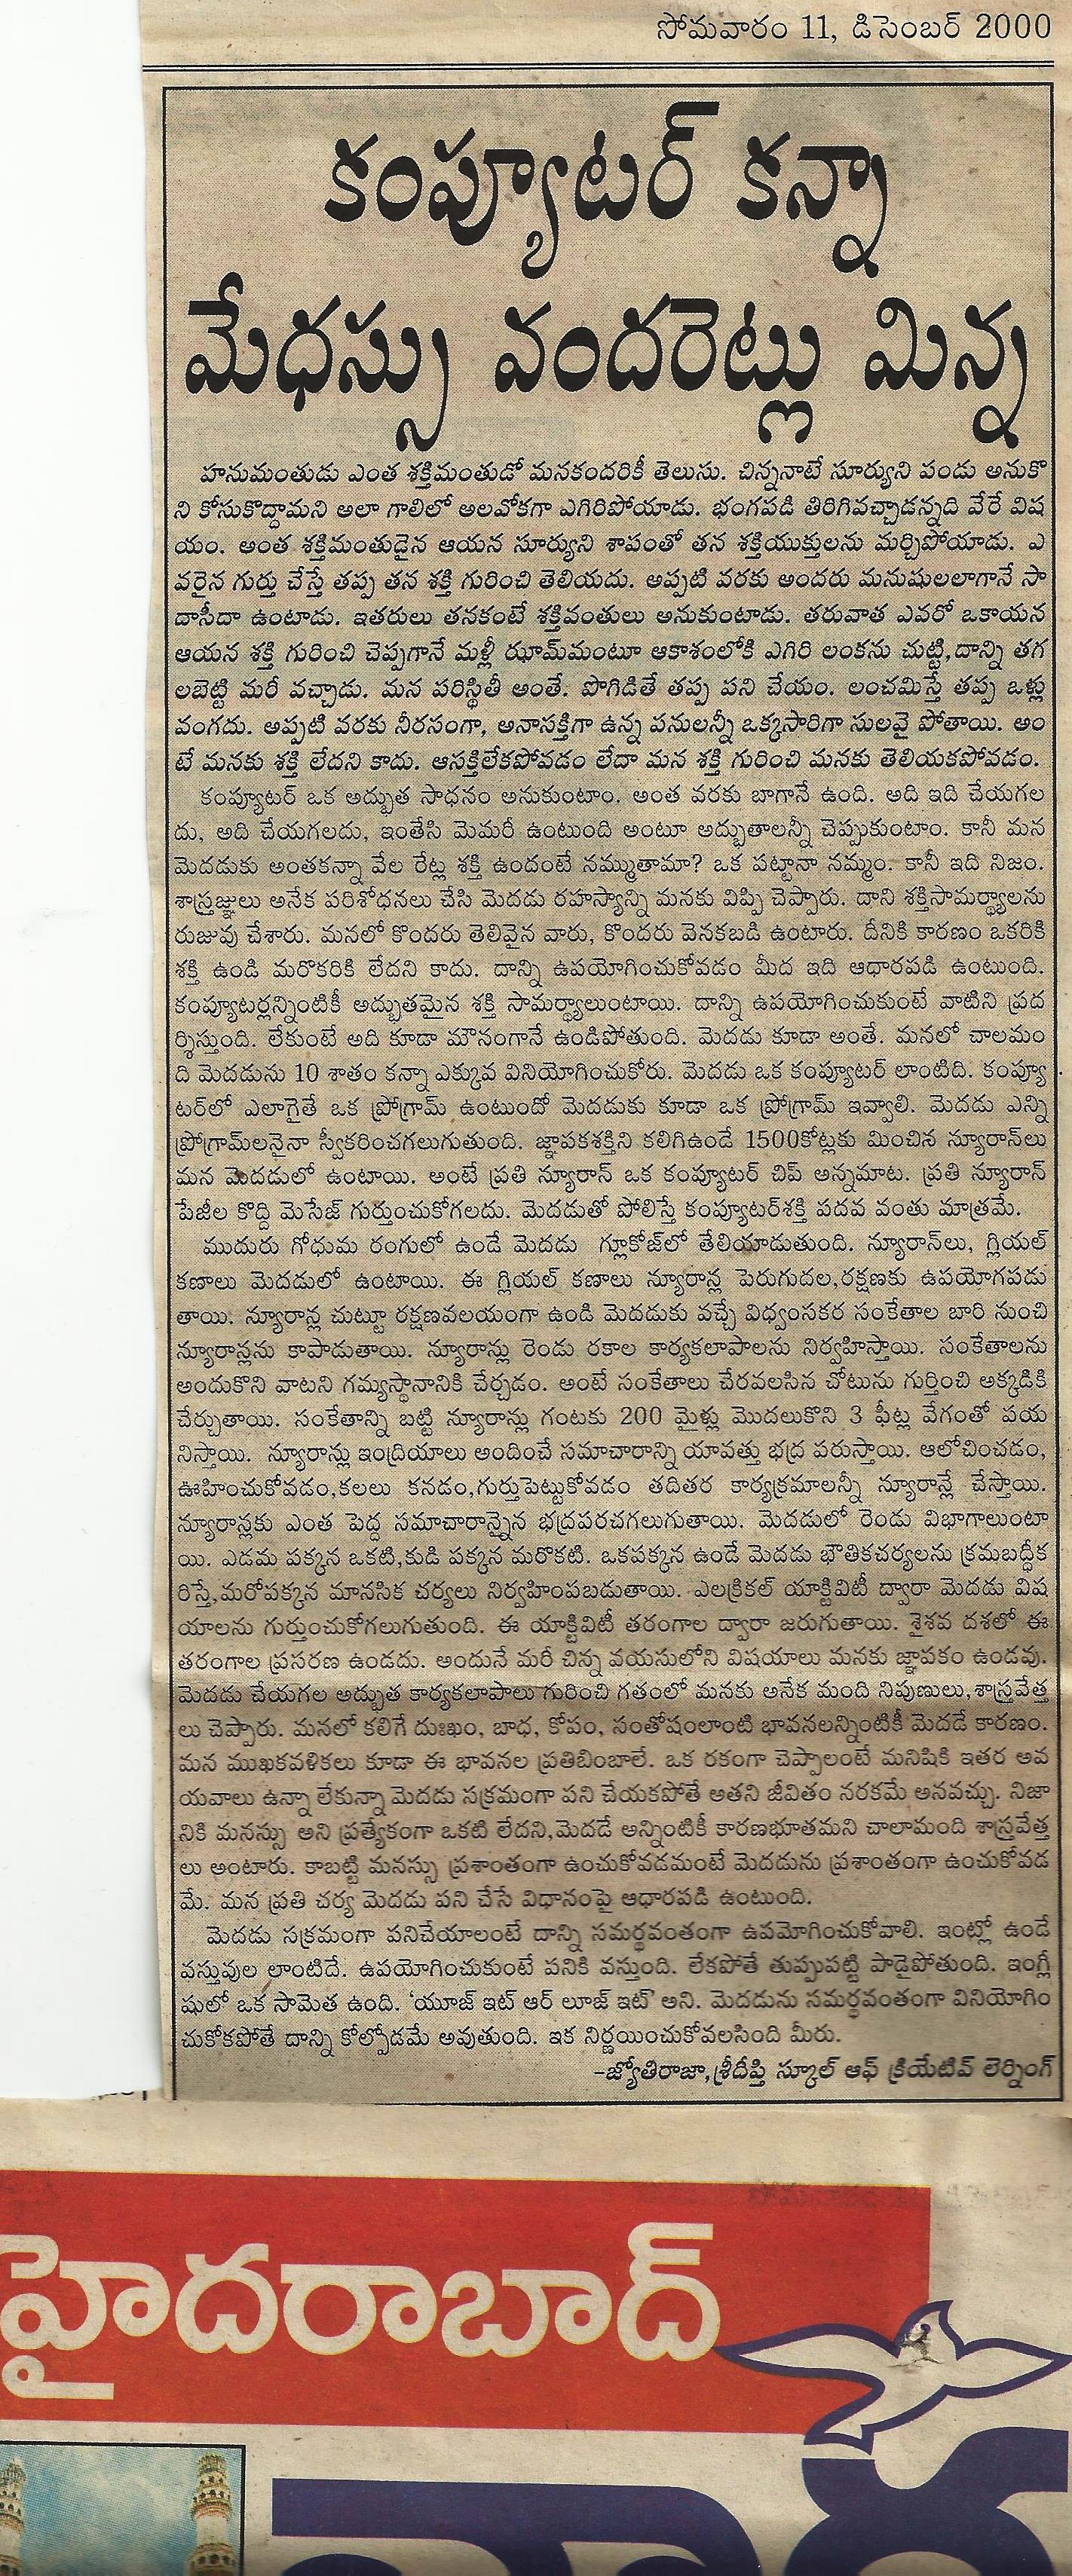 సోమవారం 11, డిసెంబర్ 2000
కంప్యూటర్ కన్నా
మేధస్సు వందరెట్లు మిన్న
హనుమంతుడు ఎంత శక్తిమంతుడో మనకందరికీ తెలుసు. చిన్ననాటే సూర్యుని పండు అనుకొ
ని కోసుకొద్దామని అలా గాలిలో అలవోకగా ఎగిరిపోయాడు. భంగపడి తిరిగివచ్చాడన్నది వేరే విష
యం. అంత శక్తిమంతుడైన ఆయన సూర్యుని శాపంతో తన శక్తియుక్తులను మర్చిపోయాడు. ఎ
వరైన గుర్తు చేస్తే తప్ప తన శక్తి గురించి తెలియదు. అప్పటి వరకు అందరు మనుషులలాగానే సా
దాసీదా ఉంటాడు. ఇతరులు తనకంటే శక్తివంతులు అనుకుంటాడు. తరువాత ఎవరో ఒకాయన
ఆయన శక్తి గురించి చెప్పగానే మళ్లీ ఝామ్‌మంటూ ఆకాశంలోకి ఎగిరి లంకను చుట్టి,దాన్ని తగ
లబెట్టి మరీ వచ్చాడు. మన పరిస్థితీ అంతే. పొగిడితే తప్ప పని చేయం. లంచమిస్తే తప్ప ఒళ్లు
వంగదు. అప్పటి వరకు నీరసంగా, అనాసక్తిగా ఉన్న పనులన్నీ ఒక్కసారిగా సులవై పోతాయి. అం
టే మనకు శక్తి లేదని కాదు. ఆసక్తిలేకపోవడం లేదా మన శక్తి గురించి మనకు తెలియకపోవడం.
కంప్యూటర్ ఒక అద్భుత సాధనం అనుకుంటాం. అంత వరకు బాగానే ఉంది. అది ఇది చేయగల
దు, అది చేయగలదు, ఇంతేసి మెమరీ ఉంటుంది అంటూ అద్భుతాలన్నీ చెప్పుకుంటాం. కానీ మన
మెదడుకు అంతకన్నా వేల రేట్ల శక్తి ఉందంటే నమ్ముతామా? ఒక పట్టానా నమ్మం. కానీ ఇది నిజం.
శాస్త్రజ్ఞులు అనేక పరిశోధనలు చేసి మెదడు రహస్యాన్ని మనకు విప్పి చెప్పారు. దాని శక్తిసామర్థ్యాలను
రుజువు చేశారు. మనలో కొందరు తెలివైన వారు, కొందరు వెనకబడి ఉంటారు. దీనికి కారణం ఒకరికి
శక్తి ఉండి మరొకరికి లేదని కాదు. దాన్ని ఉపయోగించుకోవడం మీద ఇది ఆధారపడి ఉంటుంది.
కంప్యూటర్లన్నింటికీ అద్భుతమైన శక్తి సామర్థ్యాలుంటాయి. దాన్ని ఉపయోగించుకుంటే వాటిని ప్రద
ర్శిస్తుంది. లేకుంటే అది కూడా మౌనంగానే ఉండిపోతుంది. మెదడు కూడా అంతే. మనలో చాలమం
ది మెదడును 10 శాతం కన్నా ఎక్కువ వినియోగించుకోరు. మెదడు ఒక కంప్యూటర్ లాంటిది. కంప్యూ
టర్‌లో ఎలాగైతే ఒక ప్రోగ్రామ్ ఉంటుందో మెదడుకు కూడా ఒక ప్రోగ్రామ్ ఇవ్వాలి. మెదడు ఎన్ని
ప్రోగ్రామ్‌లనైనా స్వీకరించగలుగుతుంది. జ్ఞాపకశక్తిని కలిగిఉండే 1500కోట్లకు మించిన న్యూరాన్‌లు
మన మెదడులో ఉంటాయి. అంటే ప్రతి న్యూరాన్ ఒక కంప్యూటర్ చిప్ అన్నమాట. ప్రతి న్యూరాన్
పేజీల కొద్ది మెసేజ్ గుర్తుంచుకోగలదు. మెదడుతో పోలిస్తే కంప్యూటర్‌శక్తి పదవ వంతు మాత్రమే.
ముదురు గోధుమ రంగులో ఉండే మెదడు గ్లూకోజ్‌లో తేలియాడుతుంది. న్యూరాన్‌లు, గ్లియల్
కణాలు మెదడులో ఉంటాయి. ఈ గ్లియల్ కణాలు న్యూరాన్ల పెరుగుదల,రక్షణకు ఉపయోగపడు
తాయి. న్యూరాన్ల చుట్టూ రక్షణవలయంగా ఉండి మెదడుకు వచ్చే విధ్వంసకర సంకేతాల బారి నుంచి
న్యూరాన్లను కాపాడుతాయి. న్యూరాన్లు రెండు రకాల కార్యకలాపాలను నిర్వహిస్తాయి. సంకేతాలను
అందుకొని వాటని గమ్యస్థానానికి చేర్చడం. అంటే సంకేతాలు చేరవలసిన చోటును గుర్తించి అక్కడికి
చేర్చుతాయి. సంకేతాన్ని బట్టి న్యూరాన్లు గంటకు 200 మైళ్లు మొదలుకొని 3 ఫీట్ల వేగంతో పయ
నిస్తాయి. న్యూరాన్లు ఇంద్రియాలు అందించే సమాచారాన్ని యావత్తు భద్ర పరుస్తాయి. ఆలోచించడం,
ఊహించుకోవడం,కలలు కనడం,గుర్తుపెట్టుకోవడం తదితర కార్యక్రమాలన్నీ న్యూరాన్లే చేస్తాయి.
న్యూరాన్లకు ఎంత పెద్ద సమాచారాన్నైన భద్రపరచగలుగుతాయి. మెదడులో రెండు విభాగాలుంటా
యి. ఎడమ పక్కన ఒకటి,కుడి పక్కన మరొకటి. ఒకపక్కన ఉండే మెదడు భౌతికచర్యలను క్రమబద్ధీక
రిస్తే,మరోపక్కన మానసిక చర్యలు నిర్వహింపబడుతాయి. ఎలక్రికల్ యాక్టివిటీ ద్వారా మెదడు విష
యాలను గుర్తుంచుకోగలుగుతుంది. ఈ యాక్టివిటీ తరంగాల ద్వారా జరుగుతాయి. శైశవ దశలో ఈ
తరంగాల ప్రసరణ ఉండదు. అందునే మరీ చిన్న వయసులోని విషయాలు మనకు జ్ఞాపకం ఉండవు.
మెదడు చేయగల అద్భుత కార్యకలాపాలు గురించి గతంలో మనకు అనేక మంది నిపుణులు,శాస్త్రవేత్త
లు చెప్పారు. మనలో కలిగే దుఃఖం, బాధ, కోపం, సంతోషంలాంటి భావనలన్నింటికీ మెదడే కారణం.
మన ముఖకవళికలు కూడా ఈ భావనల ప్రతిబింబాలే. ఒక రకంగా చెప్పాలంటే మనిషికి ఇతర అవ
యవాలు ఉన్నా లేకున్నా మెదడు సక్రమంగా పని చేయకపోతే అతని జీవితం నరకమే అనవచ్చు. నిజా
నికి మనస్సు అని ప్రత్యేకంగా ఒకటి లేదని,మెదడే అన్నింటికీ కారణభూతమని చాలామంది శాస్త్రవేత్త
లు అంటారు. కాబట్టి మనస్సు ప్రశాంతంగా ఉంచుకోవడమంటే మెదడును ప్రశాంతంగా ఉంచుకోవడ
మే. మన ప్రతి చర్య మెదడు పని చేసే విధానంపై ఆధారపడి ఉంటుంది.
మెదడు సక్రమంగా పనిచేయాలంటే దాన్ని సమర్థవంతంగా ఉపమోగించుకోవాలి. ఇంట్లో ఉండే
వస్తువుల లాంటిదే. ఉపయోగించుకుంటే పనికి వస్తుంది. లేకపోతే తుప్పుపట్టి పాడైపోతుంది. ఇంగ్లీ
షులో ఒక సామెత ఉంది. 'యూజ్ ఇట్ ఆర్ లూజ్ ఇట్' అని. మెదడును సమర్థవంతంగా వినియోగిం
చుకోకపోతే దాన్ని కోల్పోడమే అవుతుంది. ఇక నిర్ణయించుకోవలసింది మీరు.
-జ్యోతిరాజా,శ్రీదీప్తి స్కూల్ ఆఫ్ క్రియేటివ్ లెర్నింగ్
హైదరాబాద్